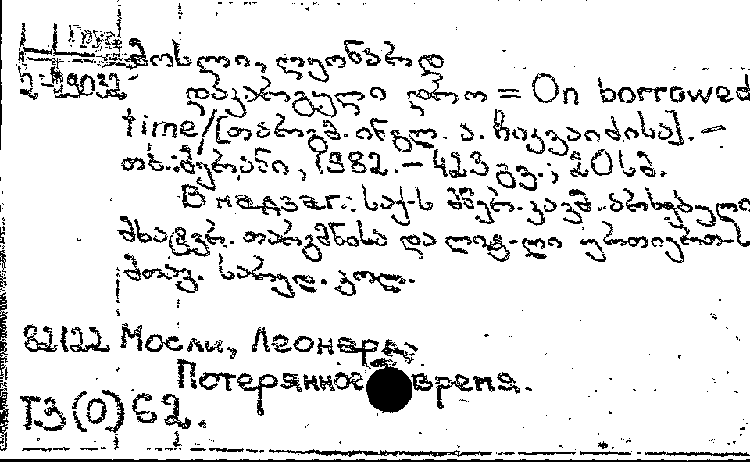 Груз
2-29032
მოსლი, ლეონარდ
დაკარგული დრო = On borrowed
time/[თარგმ. ინგლ. ა. ჩიკვაიძისა]. –
თბ.: მერანი, 1982. – 423 გვ.; 20 სმ.
В надзаг.: საქ-ს მწერ. კავშ. არსებული
მხატვრ. თარგმნისა და ლიტ-ლი ურთიერთ-ს
მთავ. სარედ. კოლ.
82122 Мосли, Леонард
Потерянное время.
Т3(0)62.